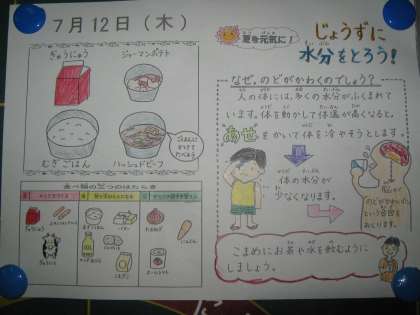 7月12日（木）
ぎゅうにゅう
ジャーマンポテト
むぎごはん
ハッシュドビーフ
ごはんに
かけて
たべよう
食べ物の三つのはたらき
ぎゅうにゅう
夏を元気に！
じょうずに
水分をとろう！
なぜ、のどがかわくのでしょう？
人の体には、多くの水分がふくまれて
います。体を動かして体温が高くなると、
あせをかいて体を冷やそうとします。
体の水分が
少なくなります。
のどがかわいた
という合図を
おくります。
こまめにお茶や水を飲むように
しましょう。